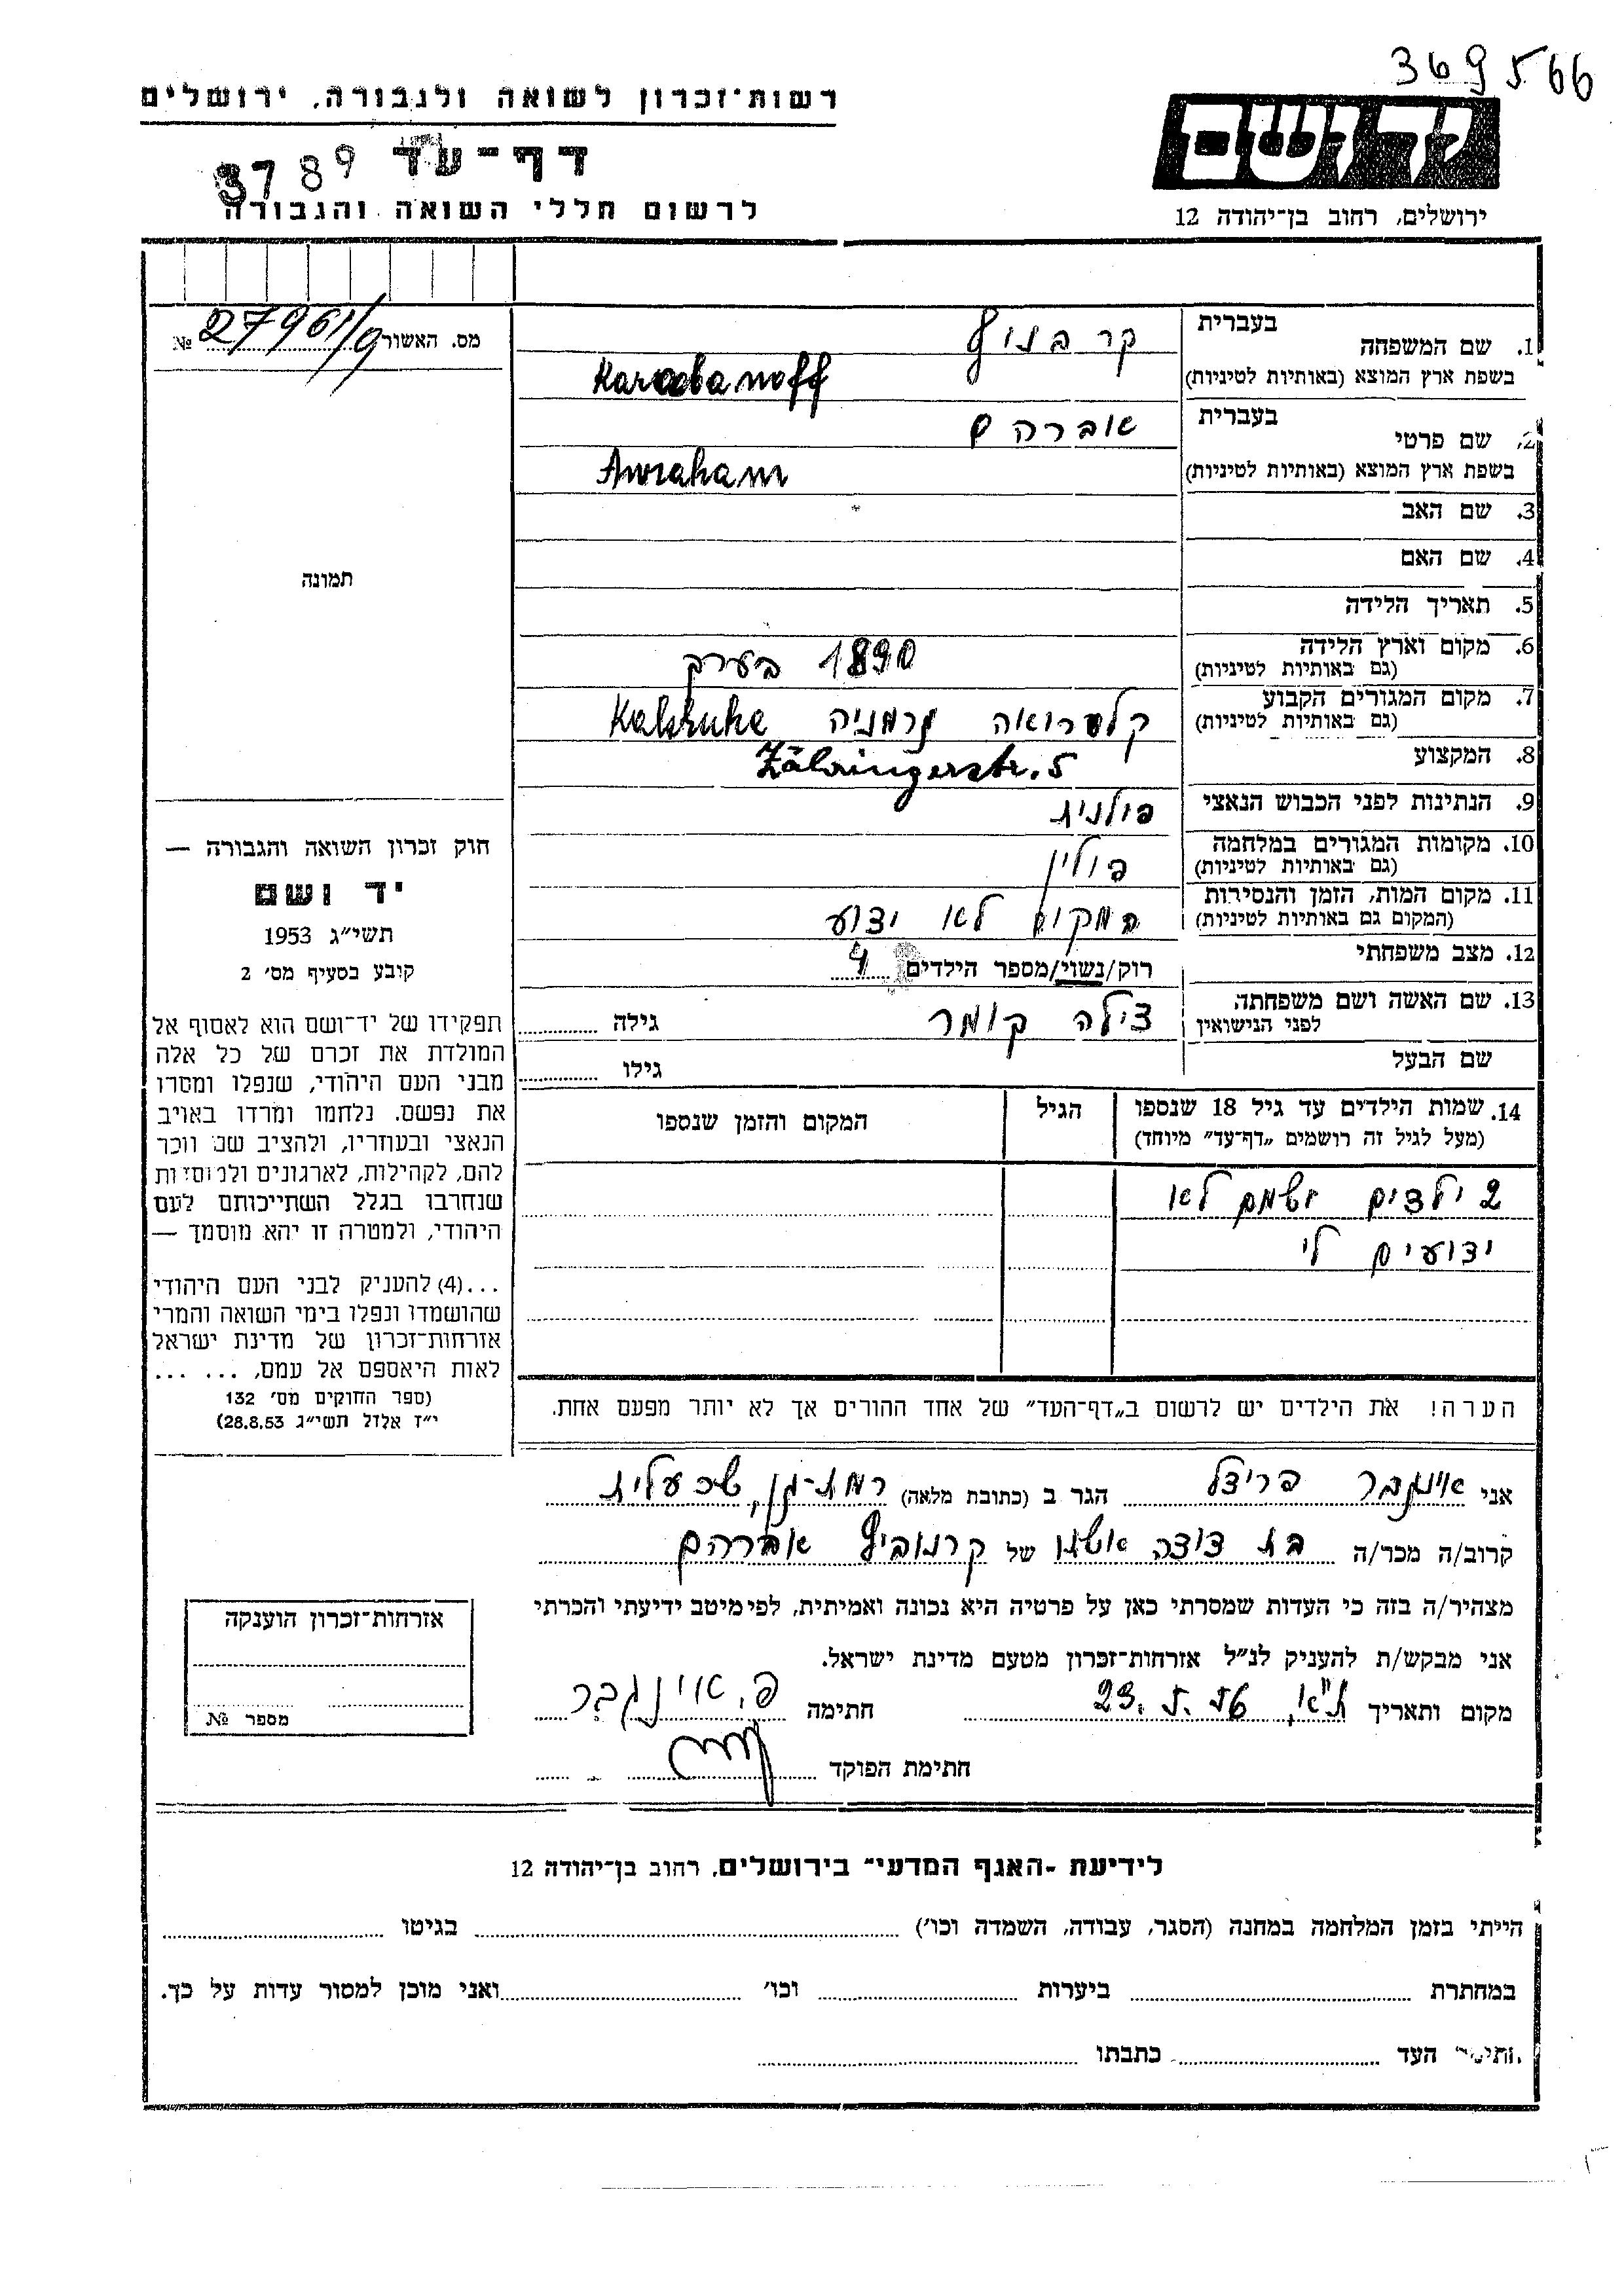 369566
רשות־זכרון לשואה ולגבורה, ירושלים
ידושם
דף־עד
3789
לרשום חללי השואה והגבורה
ירושלים, רחוב בן־יהודה 12
מס. האשור 27961/9 №
1. שם המשפחה בעברית קרבנוף
בשפת ארץ המוצא (באותיות לטיניות)
2. שם פרטי בעברית אברהם
בשפת ארץ המוצא (באותיות לטיניות) Awraham
3. שם האב
4. שם האם
5. תאריך הלידה
6. מקום וארץ הלידה 1890 בערך
(גם באותיות לטיניות)
7. מקום המגורים הקבוע קלסרואה גרמניה Kalsruhe
(גם באותיות לטיניות)
8. המקצוע Zähringerstr. 5
9. הנתינות לפני הכבוש הנאצי פולנית
10. מקומות המגורים במלחמה פולין
(גם באותיות לטיניות)
11. מקום המות, הזמן והנסיבות המקום לא ידוע
(המקום גם באותיות לטיניות)
12. מצב משפחתי רוק/נשוי/מספר הילדים 4
13. שם האשה ושם משפחתה צילה קומר גילה
לפני הנישואין
שם הבעל גילו
14. שמות הילדים עד גיל 18 שנספו הגיל המקום והזמן שנספו
(מעל לגיל זה רושמים „דף־עד״ מיוחד)
2 ילדים ששמם לא
ידועים לי
הערה! את הילדים יש לרשום ב„דף־העד״ של אחד ההורים אך לא יותר מפעם אחת.
תמונה
חוק זכרון השואה והגבורה —
יד ושם
תשי״ג 1953
קובע בסעיף מס׳ 2
תפקידו של יד־ושם הוא לאסוף אל
המולדת את זכרם של כל אלה
מבני העם היהודי, שנפלו ומסרו
את נפשם, נלחמו ומרדו באויב
הנאצי ובעוזריו, ולהציב שם וזכר
להם, לקהילות, לארגונים ולמוסדות
שנחרבו בגלל השתייכותם לעם
היהודי, ולמטרה זו יהא מוסמך —
...(4) להעניק לבני העם היהודי
שהושמדו ונפלו בימי השואה והמרי
אזרחות־זכרון של מדינת ישראל
לאות היאספם אל עמם, ... ...
(ספר החוקים מס׳ 132
י״ז אלול תשי״ג 28.8.53)
אני אינגבר פריצל הגר ב (כתובת מלאה) רמת־גן,
קרוב/ה מכר/ה בת דודה אשתו של קרנוביף אברהם
מצהיר/ה בזה כי העדות שמסרתי כאן על פרטיה היא נכונה ואמיתית, לפי מיטב ידיעתי והכרתי
אני מבקש/ת להעניק לנ״ל אזרחות־זכרון מטעם מדינת ישראל.
מקום ותאריך ת״א, 23.5.56 חתימה פ. אינגבר
חתימת הפוקד
אזרחות־זכרון הוענקה
מספר №
לידיעת ״האגף המדעי״ בירושלים, רחוב בן־יהודה 12
הייתי בזמן המלחמה במחנה (הסגר, עבודה, השמדה וכו׳) בגיטו
במחתרת ביערות וכו׳ ואני מוכן למסור עדות על כך.
חתימת העד כתבתו